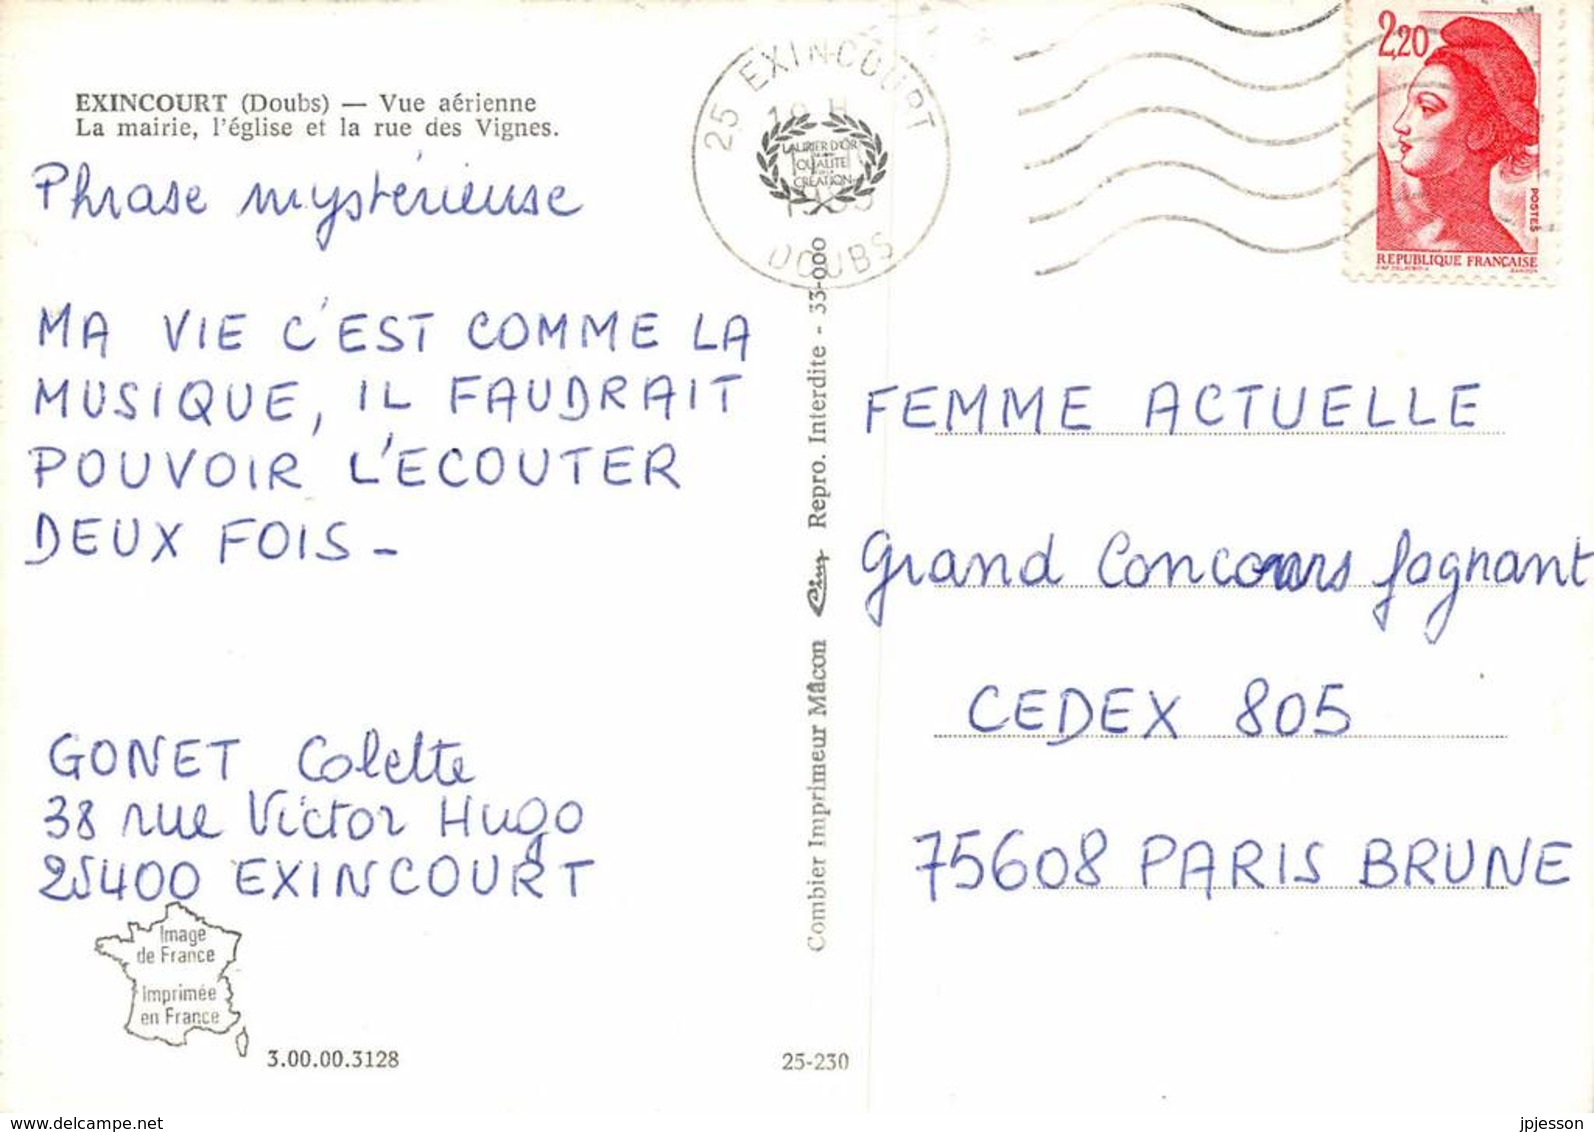 EXINCOURT (Doubs) — Vue aérienne
La mairie, l'église et la rue des Vignes.
Phrase mystérieuse
MA VIE C'EST COMME LA
MUSIQUE, IL FAUDRAIT
POUVOIR L'ECOUTER
DEUX FOIS -
GONET Colette
38 rue Victor Hugo
25400 EXINCOURT
Image
de France
Imprimée
en France
3.00.00.3128
25-230
Combier Imprimeur Mâcon Cim Repro. Interdite - 33-000
25 EXINCOURT
LAURIER D'OR
QUALITÉ
CRÉATION
DOUBS
2,20
POSTES
REPUBLIQUE FRANÇAISE
FEMME ACTUELLE
Grand Concours gagnant
CEDEX 805
75608 PARIS BRUNE
www.delcampe.net
jpjesson